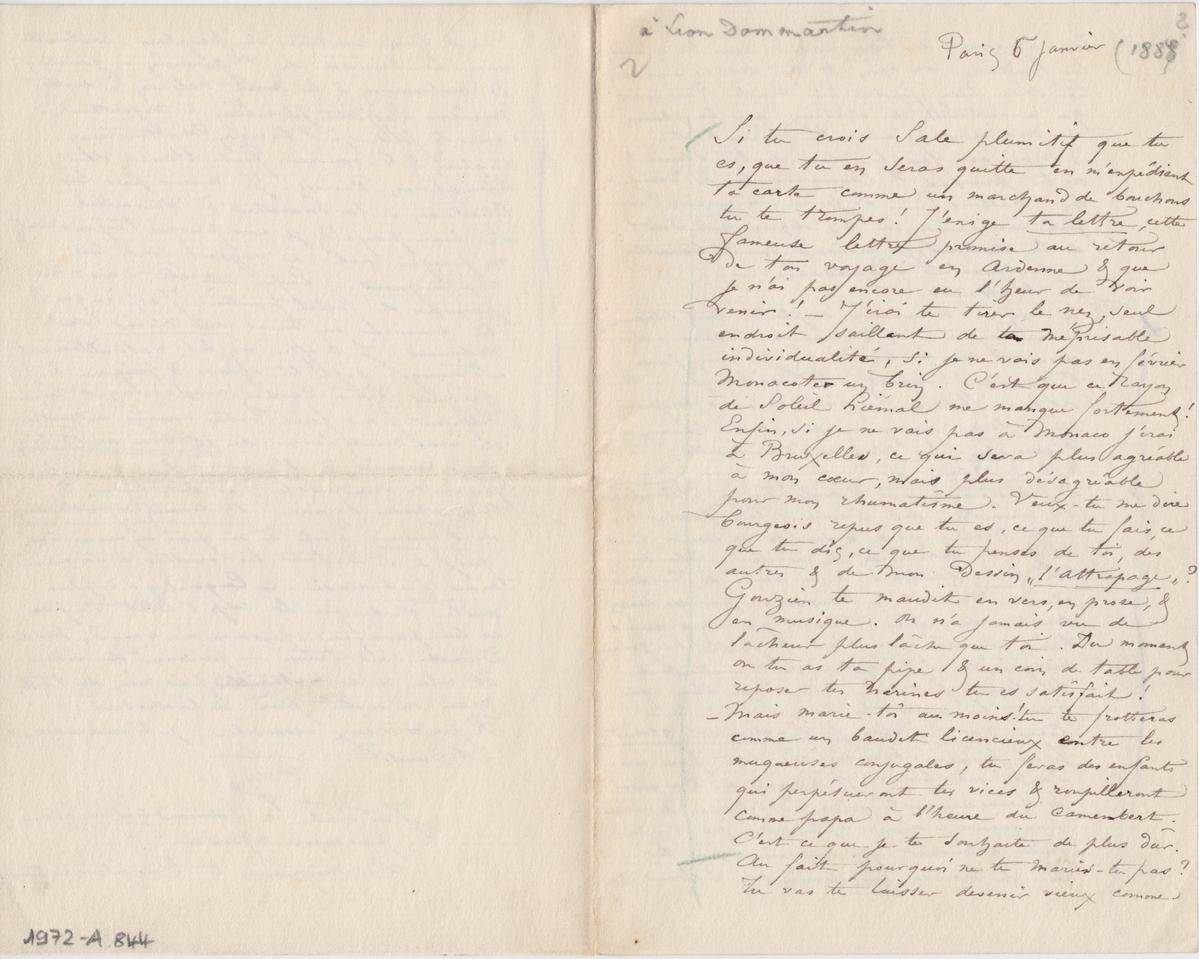 à Léon Dommartin
2
Paris 6 janvier (1888)
Si tu crois Sale plumitif que tu
es, que tu en seras quitte en m'expédiant
ta carte comme un marchand de bouchons
tu te trompes ! J'exige ta lettre, cette
fameuse lettre promise au retour
de ton voyage en Ardenne & que
je n'ai pas encore eu l'heur de voir
venir ! – J'irai te tirer le nez, seul
endroit saillant de ta méprisable
individualité, si je ne vais pas en février
Monacoter un brin. C'est que ce rayon
de Soleil hiémal me manque fortement !
Enfin, si je ne vais pas à Monaco j'irai
à Bruxelles, ce qui sera plus agréable
à mon cœur, mais plus désagréable
pour mon rhumatisme. Veux-tu me dire
bourgeois repus que tu es, ce que tu fais, ce
que tu dis, ce que tu penses de toi, des
autres & de mon Dessin „l'attrapage" ?
Gouzien te maudit en vers, en prose, &
en musique. On n'a jamais vu de
lâcheur plus lâche que toi. Du moment
où tu as ta pipe & un coin de table pour
reposer tes narines tu es satisfait !
– Mais marie-toi au moins ! tu te frotteras
comme un baudet licencieux contre les
muqueuses conjugales, tu feras des enfants
qui perpétueront tes vices & roupilleront
comme papa à l'heure du Camembert.
C'est ce que je te souhaite de plus dûr.
Au fait pourquoi ne te maries-tu pas ?
Tu vas te laisser devenir vieux comme
1972-A 844